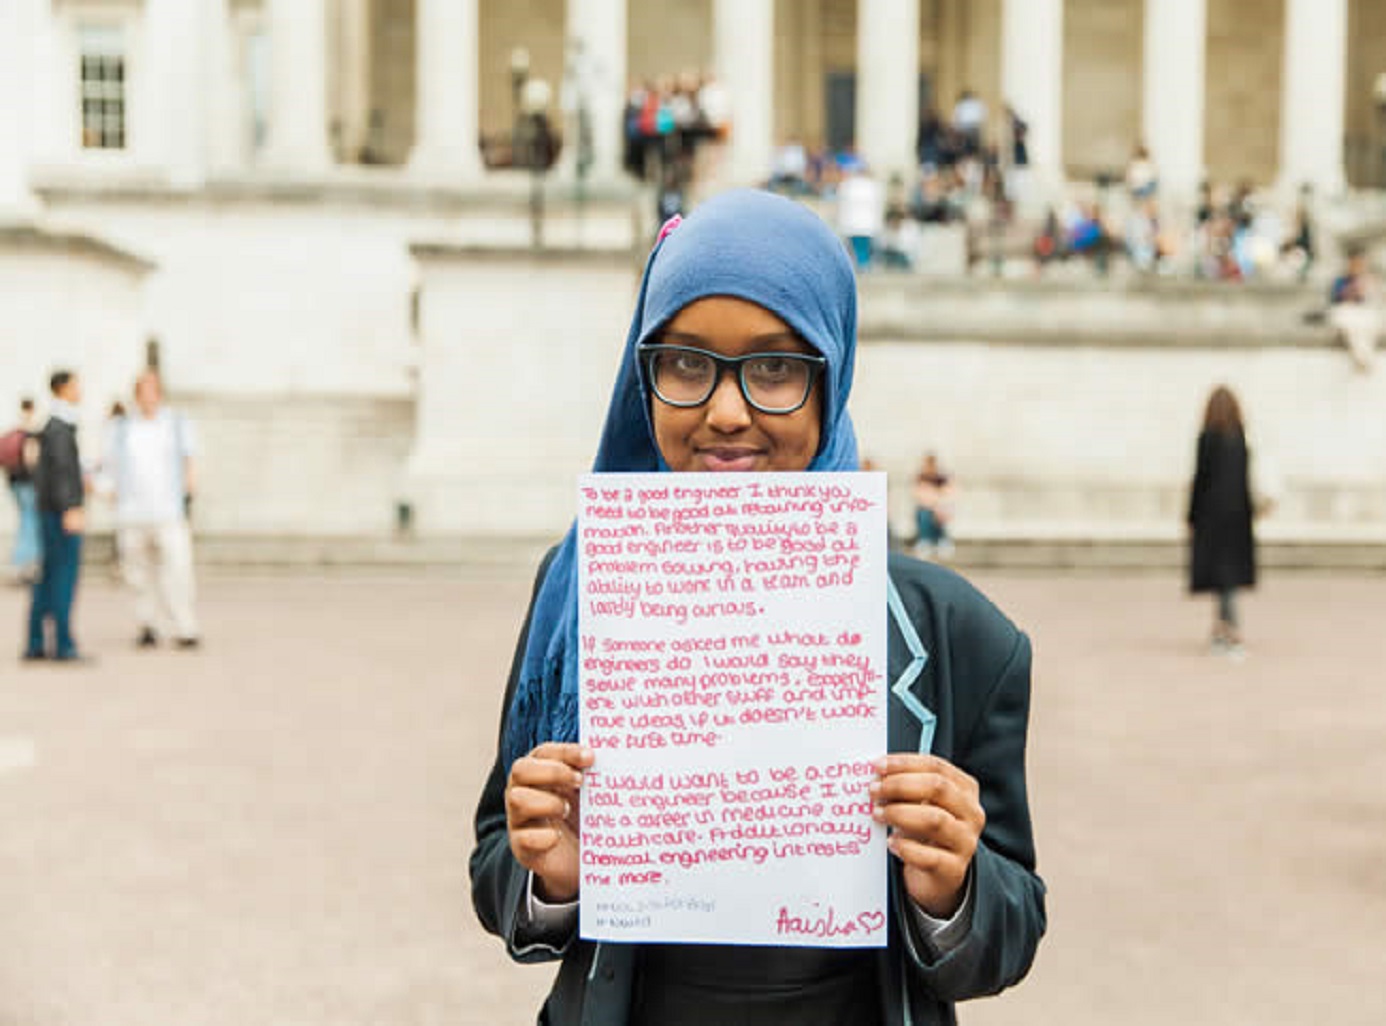 To be a good engineer I think you
need to be good at retaining info-
mation. Another quality to be a
good engineer is to be good at
problem solving, having the
ability to work in a team and
lastly being curious.
If someone asked me what do
engineers do I would say they
solve many problems, experim-
ent with other stuff and imp-
rove ideas if it doesn't work
the first time.
I would want to be a chem
ical engineer because I w
ant a career in medicine and
healthcare. Additionally
Chemical engineering intrests
me more.
Aaisha